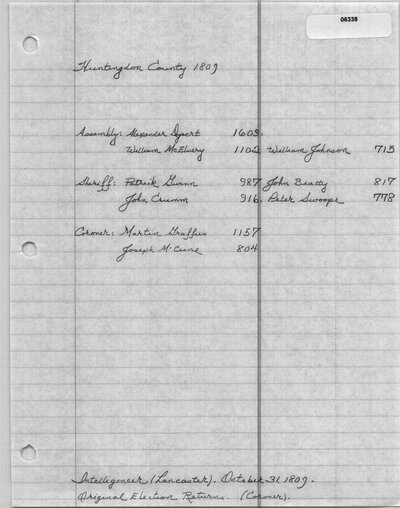 06338
Huntengdon County 1809
Assembly: Alexander Dysert 1603.
William McElvery 1102 William Johnson 715
Sheriff: Patrick Gwinn 987 John Beatty 817
John Crumm 916. Peter Swoope 778
Coroner: Martin Graffius 1157
Joseph McCune 804
Intelligencer (Lancaster). October 31, 1809.
Original Election Returns. (Coroner).